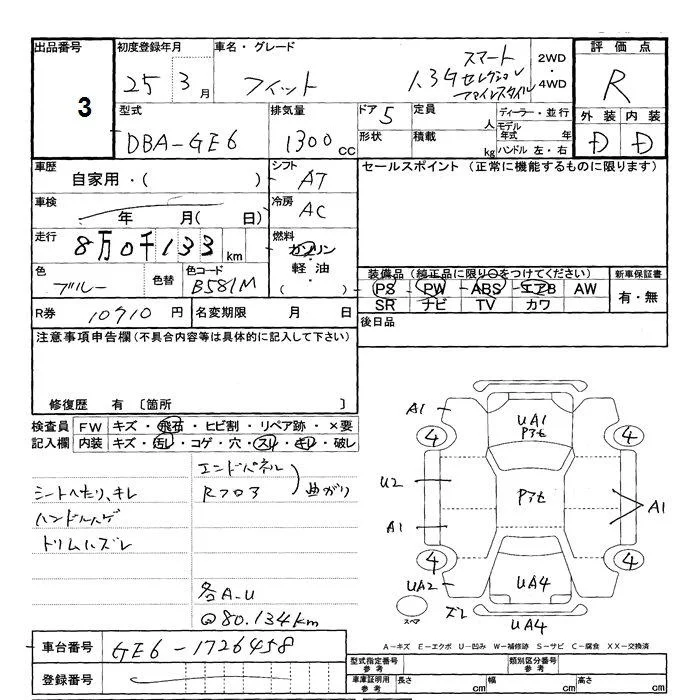 出品番号
3
初度登録年月
25 3月
車名・グレード
フィット
1.3G スマート
セレクション
ファインスタイル
2WD
・
4WD
評価点
R
外装 内装
D D
型式
DBA-GE6
排気量
1300cc
ドア 5
形状
定員 人
積載 kg
ディーラー・並行
モデル年式 年
ハンドル 左・右
車歴
自家用・( )
シフト
AT
セールスポイント (正常に機能するものに限ります)
車検
年 月( 日)
冷房
AC
走行
8万0千133km
燃料
ガソリン
軽油
( ・ )
色
ブルー
色替
色コード
B581M
装備品(純正品に限り○をつけてください)
PS PW ABS エアB AW
SR ナビ TV カワ
新車保証書
有・無
R券 10910円
名変期限 月 日
後日品
注意事項申告欄(不具合内容等は具体的に記入して下さい)
修復歴 有 〔箇所 〕
検査員記入欄
FW キズ・飛石・ヒビ割・リペア跡・×要
内装 キズ・汚レ・コゲ・穴・スレ・キレ・破レ
シートヘたり、キレ
ハンドルハゲ
トリムハズレ
エンドパネル
Rフロア
曲がり
各A.U
@80.134km
A1
UA1
Pアセ
4
4
U2
Pアセ
A1
A1
4
4
UA2
UA4
スペア
ズレ
UA4
A－キズ E－エクボ U－凹み W－補修跡 S－サビ C－腐食 XX－交換済
車台番号
GE6-1726458
登録番号
型式指定番号
参考
類別区分番号
参考
車庫証明用
参考
長さ cm
幅 cm
高さ cm